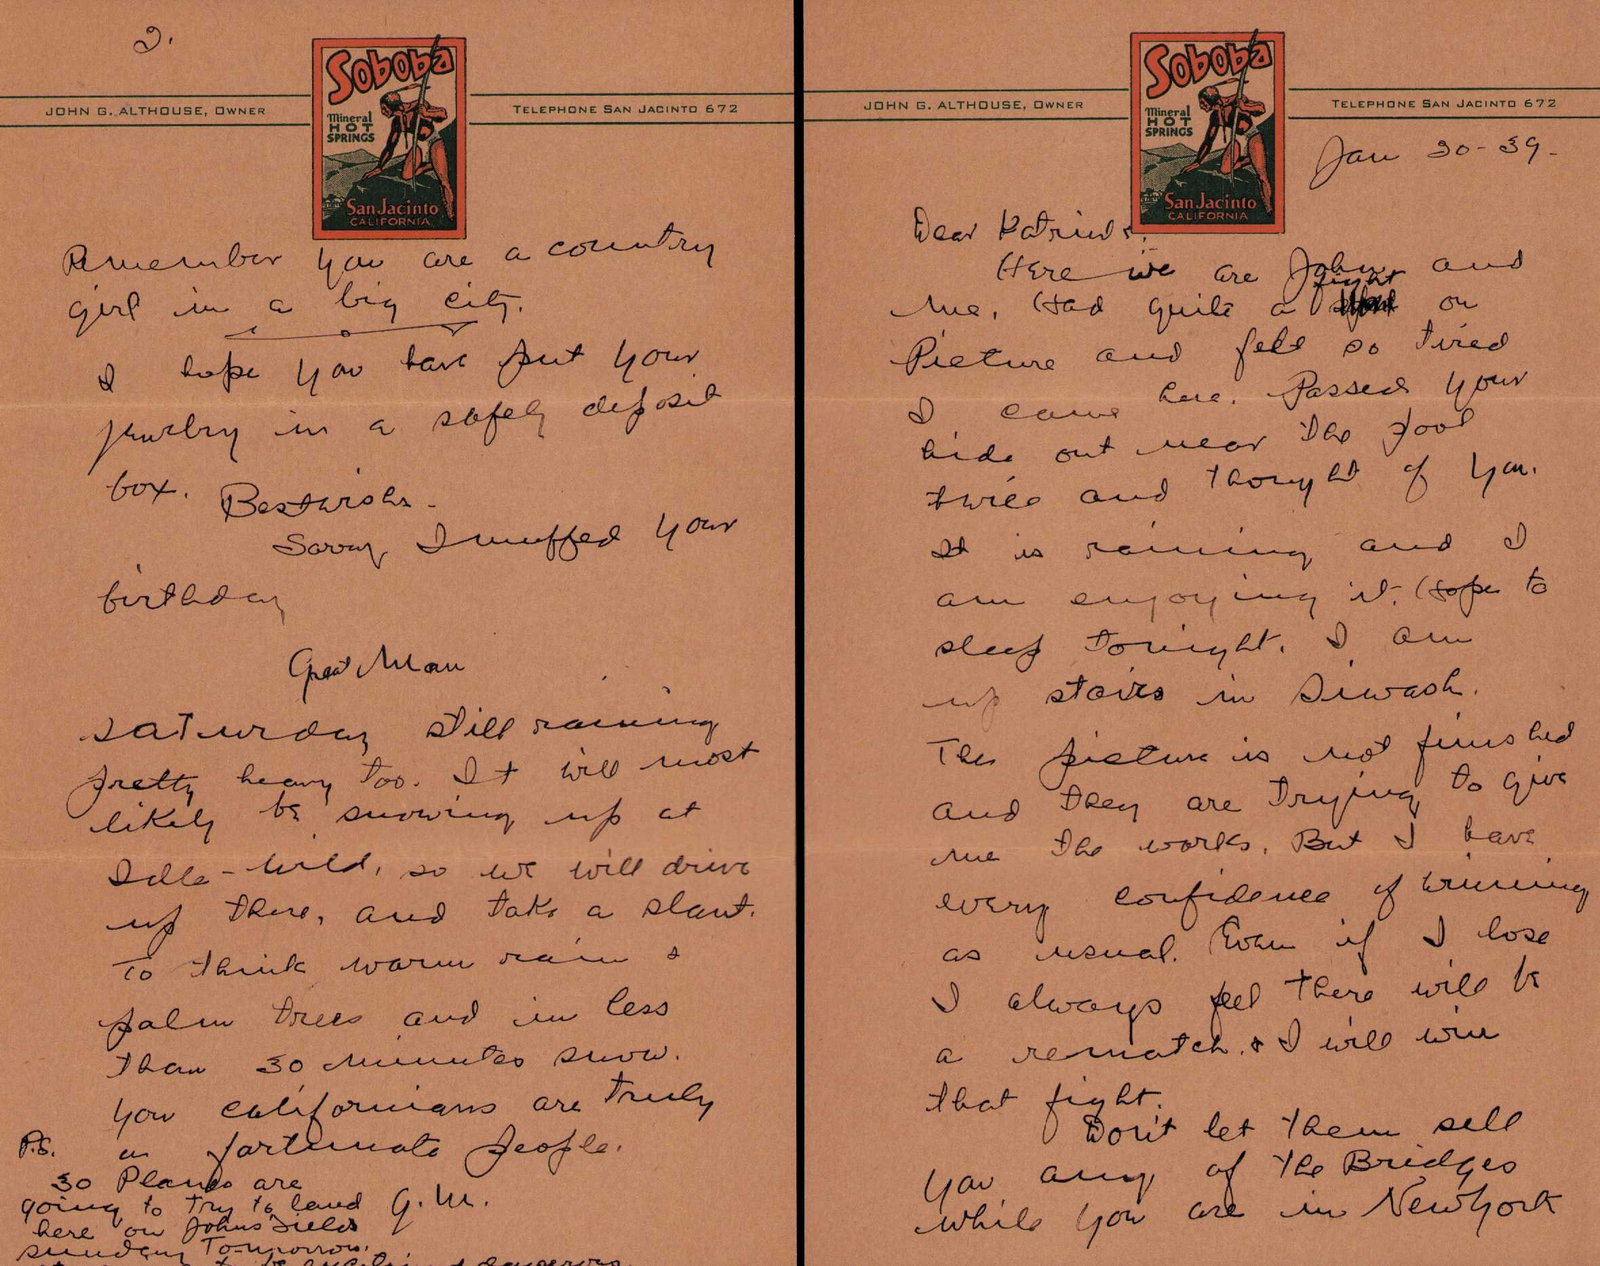 2.
JOHN G. ALTHOUSE, OWNER
Soboba
Mineral
HOT
SPRINGS
San Jacinto
CALIFORNIA
TELEPHONE SAN JACINTO 672
Remember you are a country
girl in a big city.
I hope you have put your
jewelry in a safely deposit
box. Best wishes.
Sorry I muffed your
birthday
Great Man
Saturday still raining
pretty heavy too. It will most
likely be snowing up at
Idle-wild, so we will drive
up there, and take a slant.
To think warm rain &
palm trees and in less
than 30 minutes snow.
You californians are truly
a fortunate people.
G.M.
P.S.
30 Planes are
going to try to land
here on Johns Field
sunday Tomorrow.
JOHN G. ALTHOUSE, OWNER
Soboba
Mineral
HOT
SPRINGS
San Jacinto
CALIFORNIA
TELEPHONE SAN JACINTO 672
Jan 30-39.
Dear
Here we are John and
me. Had quite a fight on
Picture and felt so tired
I came here. Passed your
hide out near the
twice and thought of you.
It is raining and I
am enjoying it. Hope to
sleep tonight. I am
up stairs in Siwash.
The picture is not finished
and they are trying to give
me the works. But I have
every confidence of winning
as usual. Even if I lose
I always feel there will be
a rematch. & I will win
that fight.
Don't let them sell
you any of the Bridges
while you are in New York